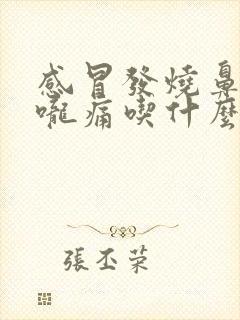 感冒發燒鼻
嚨痛喫什麼
張丕荣